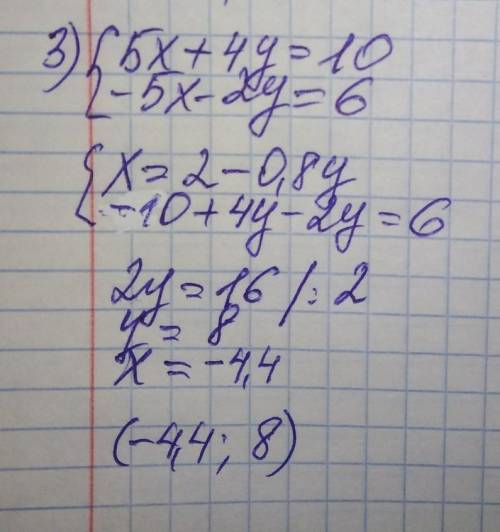 3) { 5x + 4y = 10
-5x - 2y = 6
{ x = 2 - 0,8y
-10 + 4y - 2y = 6
2y = 16 / : 2
y = 8
x = -4,4
(-4,4 ; 8)